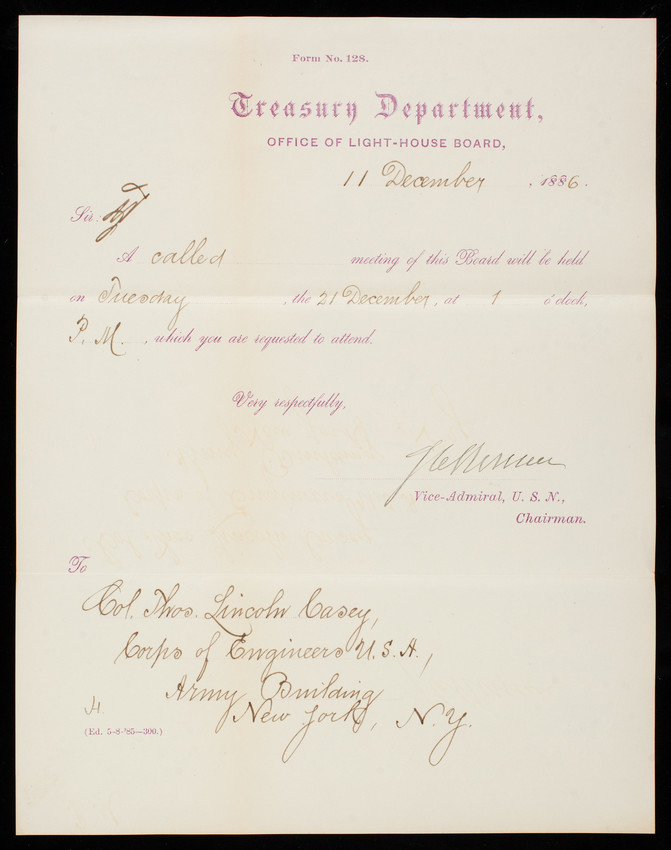 Form No. 128.
Treasury Department,
OFFICE OF LIGHT-HOUSE BOARD,
11 December, 1886.
Sir:
A called meeting of this Board will be held
on Tuesday, the 21 December, at 1 o'clock,
P. M., which you are requested to attend.
Very respectfully,
Vice-Admiral, U. S. N.,
Chairman.
To
Col. Thos. Lincoln Casey,
Corps of Engineers U.S.A.,
Army Building
New York, N.Y.
H.
(Ed. 5-8-'85—300.)